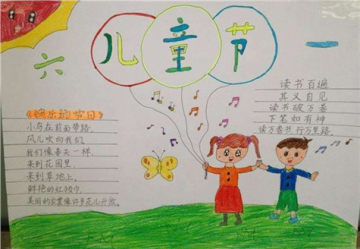 六 儿童节 一
《快乐的节日》
小鸟在前面带路,
风儿吹向我们,
我们像春天一样,
来到花园里,
来到草地上,
鲜艳的红领巾,
美丽的衣裳像许多花儿开放。
读书百遍
其义自见
读书破万卷
下笔如有神
读万卷书 行万里路